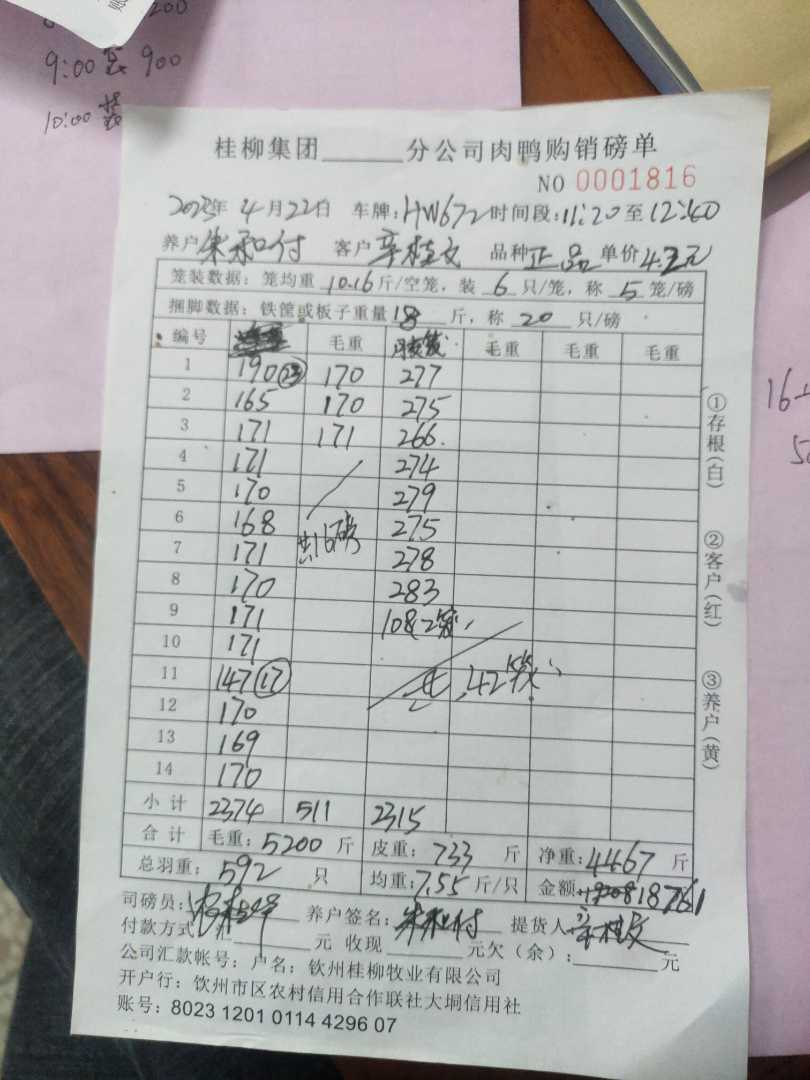 200
9:00 装 900
10:00 装
桂柳集团______分公司肉鸭购销磅单
NO 0001816
2023年 4月22日 车牌:HW672 时间段:11:20至12:40
养户 朱和付 客户 辛桂文 品种 正品 单价 4.2元
笼装数据: 笼均重 10.16 斤/空笼, 装 6 只/笼, 称 5 笼/磅
捆脚数据: 铁筐或板子重量 18 斤, 称 20 只/磅
编号 毛重 毛重 毛重 毛重
1 190 (23) 170 277
2 165 170 275
3 171 171 266
4 171 274
5 170 279
6 168 275
7 171 共16磅 278
8 170 283
9 171 108 2笼
10 171
11 147 (17) 42笼
12 170
13 169
14 170
小计 2374 511 2315
合计 毛重: 5200 斤 皮重: 733 斤 净重: 4467 斤
总羽重: 592 只 均重: 7.55 斤/只 金额: 18761
司磅员: 养户签名: 朱和付 提货人: 辛桂文
付款方式: 汇______元 收现______元欠(余):______元
公司汇款帐号: 户名: 钦州桂柳牧业有限公司
开户行: 钦州市区农村信用合作联社大垌信用社
账号: 8023 1201 0114 4296 07
①存根(白) ②客户(红) ③养户(黄)
16